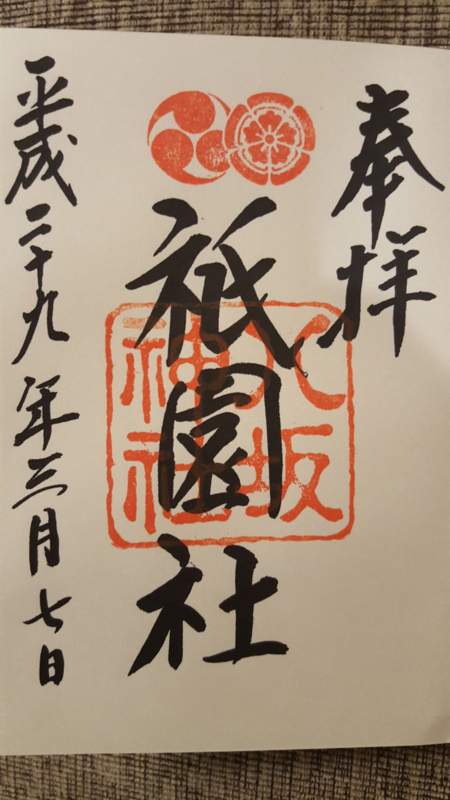 奉拝
祇園社
八坂
神社
平成二十九年三月七日